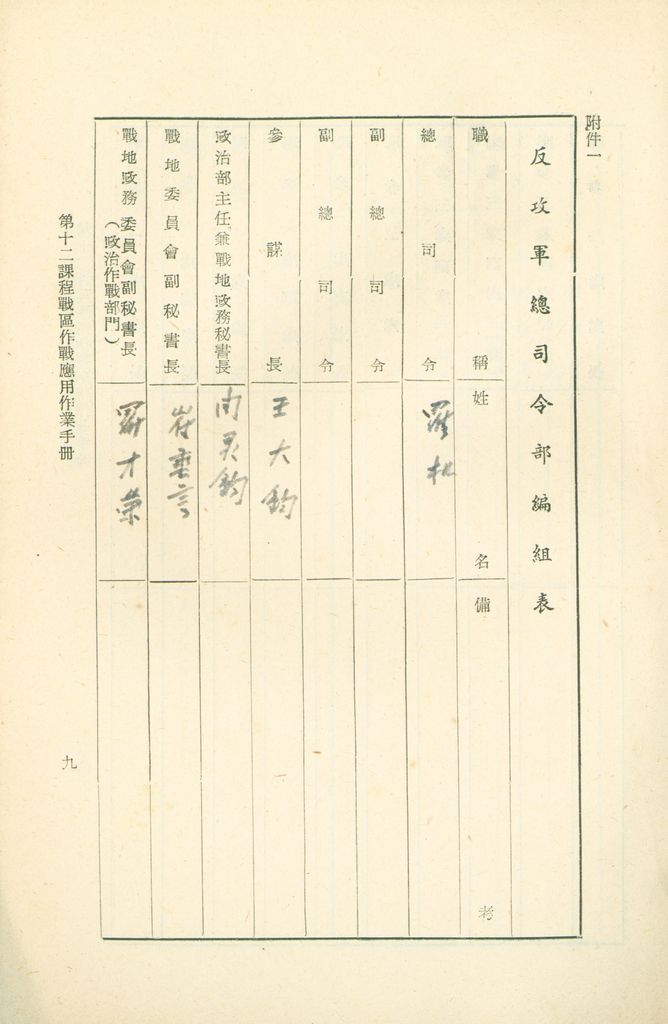 附件一
反攻軍總司令部編組表
職稱
姓名
備考
總司令
羅机
副總司令
副總司令
參謀長
王大鈞
政治部主任兼戰地政務秘書長
鈞
戰地委員會副秘書長
崔重言
戰地政務委員會副秘書長
（政治作戰部門）
羅才榮
第十二課程戰區作戰應用作業手冊
九